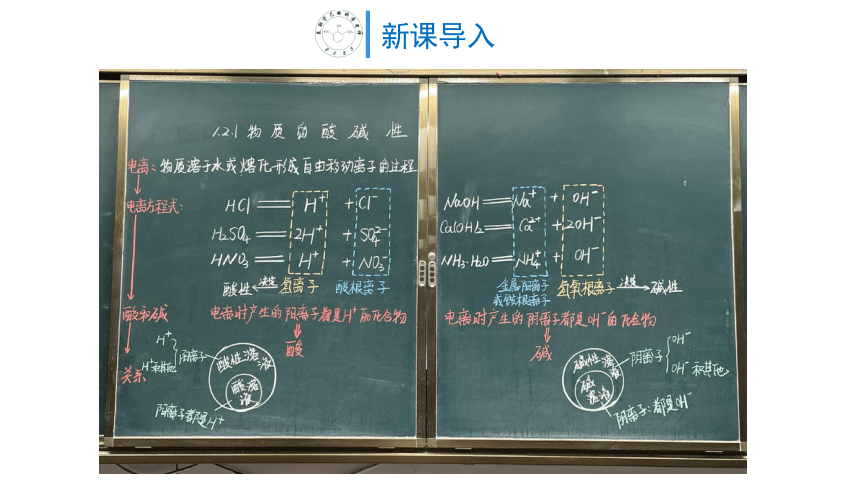 新课导入
1.2.1 物质的酸碱性
电离：物质溶于水或熔化形成自由移动离子的过程
电离方程式：
HCl == H⁺ + Cl⁻
H₂SO₄ == 2H⁺ + SO₄²⁻
HNO₃ == H⁺ + NO₃⁻
酸性 ← 决定 氢离子 酸根离子
酸和碱
电离时产生的阳离子都是H⁺的化合物
⇓
酸
关系
H⁺
H⁺和其他
阳离子
酸性溶液
酸溶液
阳离子都是H⁺
NaOH == Na⁺ + OH⁻
Ca(OH)₂ == Ca²⁺ + 2OH⁻
NH₃·H₂O == NH₄⁺ + OH⁻
金属阳离子
或铵根离子
氢氧根离子 决定 → 碱性
电离时产生的阴离子都是OH⁻的化合物
⇓
碱
碱性溶液
碱溶液
阴离子
OH⁻
OH⁻和其他
阴离子：都是OH⁻